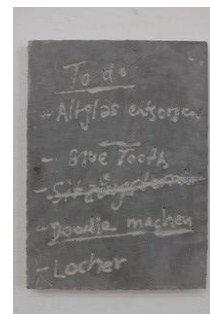 To do
- Altglas entsorgen
- Blue Tooth
- Doodle machen
- Locher